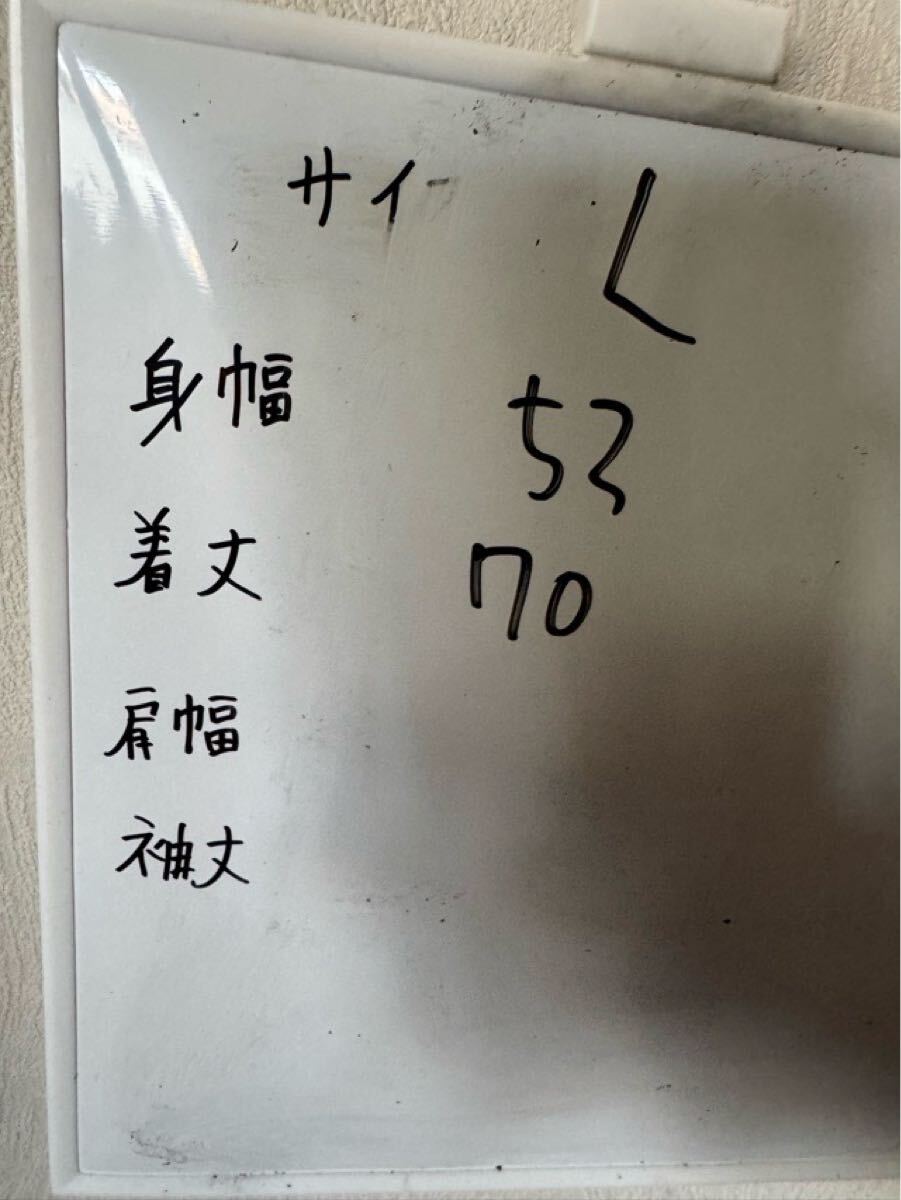 サイ L
身幅 53
着丈 70
肩幅
袖丈